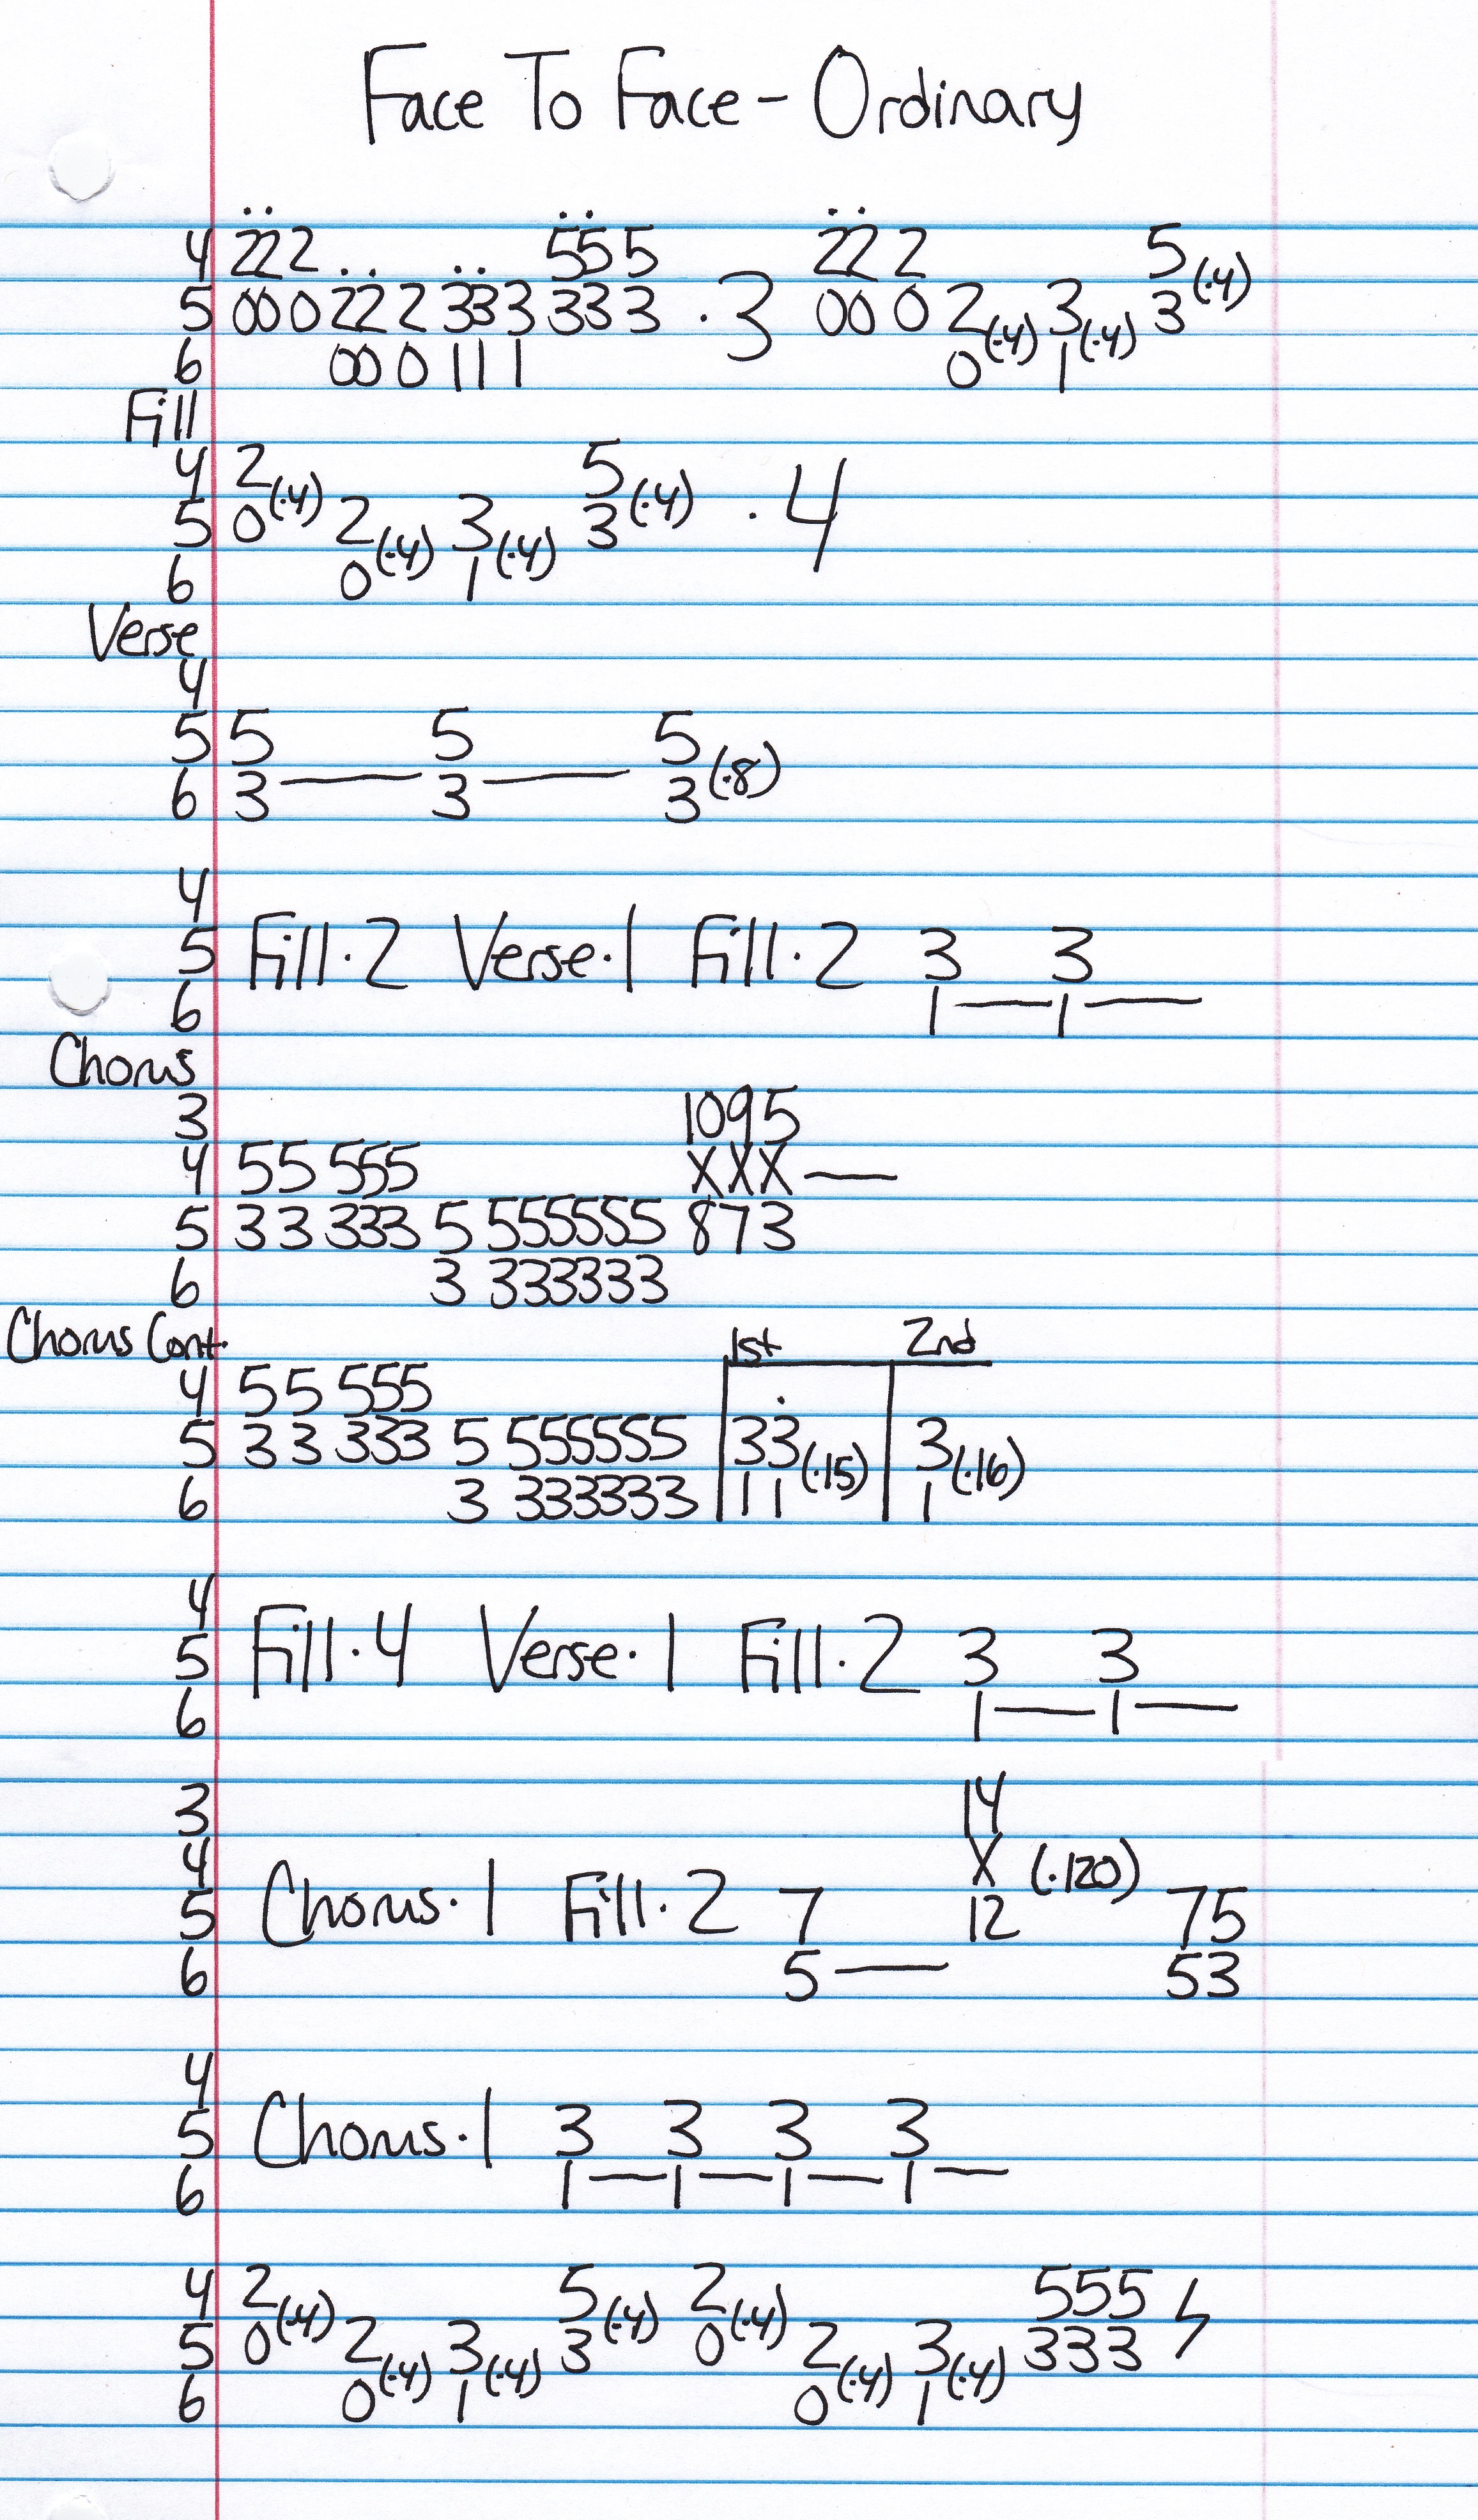 Face To Face - Ordinary
4 222 555 222 5
5 000 222 333 333 · 3 000 2(·4) 3(·4) 3(·4)
6 000 111 0 1
Fill
4 2 5
5 0(·4) 2 3 3(·4) · 4
6 0(·4) 1(·4)
Verse
4
5 5 5 5
6 3 — 3 — 3(·8)
4
5 Fill·2 Verse·1 Fill·2 3 3
6 1 — 1 —
Chorus
3 1095
4 55 555 XXX —
5 33 333 5 555555 873
6 3 333333
Chorus Cont. 1st 2nd
4 55 555
5 33 333 5 555555 33 3
6 3 333333 11(·15) 1(·16)
4
5 Fill·4 Verse·1 Fill·2 3 3
6 1 — 1 —
3 14
4 X (·120)
5 Chorus·1 Fill·2 7 12 75
6 5 — 53
4
5 Chorus·1 3 3 3 3
6 1 — 1 — 1 — 1 —
4 2 5 2 555
5 0(·4) 2 3 3(·4) 0(·4) 2 3 333
6 0(·4) 1(·4) 0(·4) 1(·4)